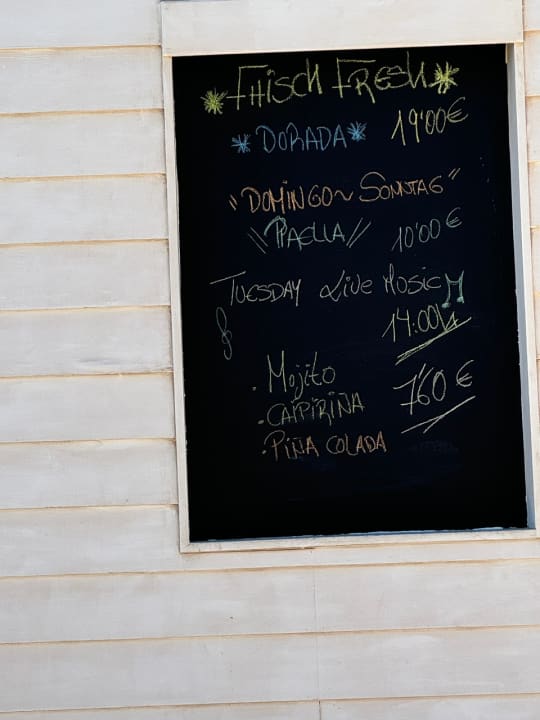 *FHisch FRESH*
*DORADA* 19'00€
"DOMINGO~ SONNTAG"
\\PAELLA// 10'00€
TUESDAY Live Music
14:00
. Mojito
. CAIPIRIÑA 7'60€
. PIÑA COLADA